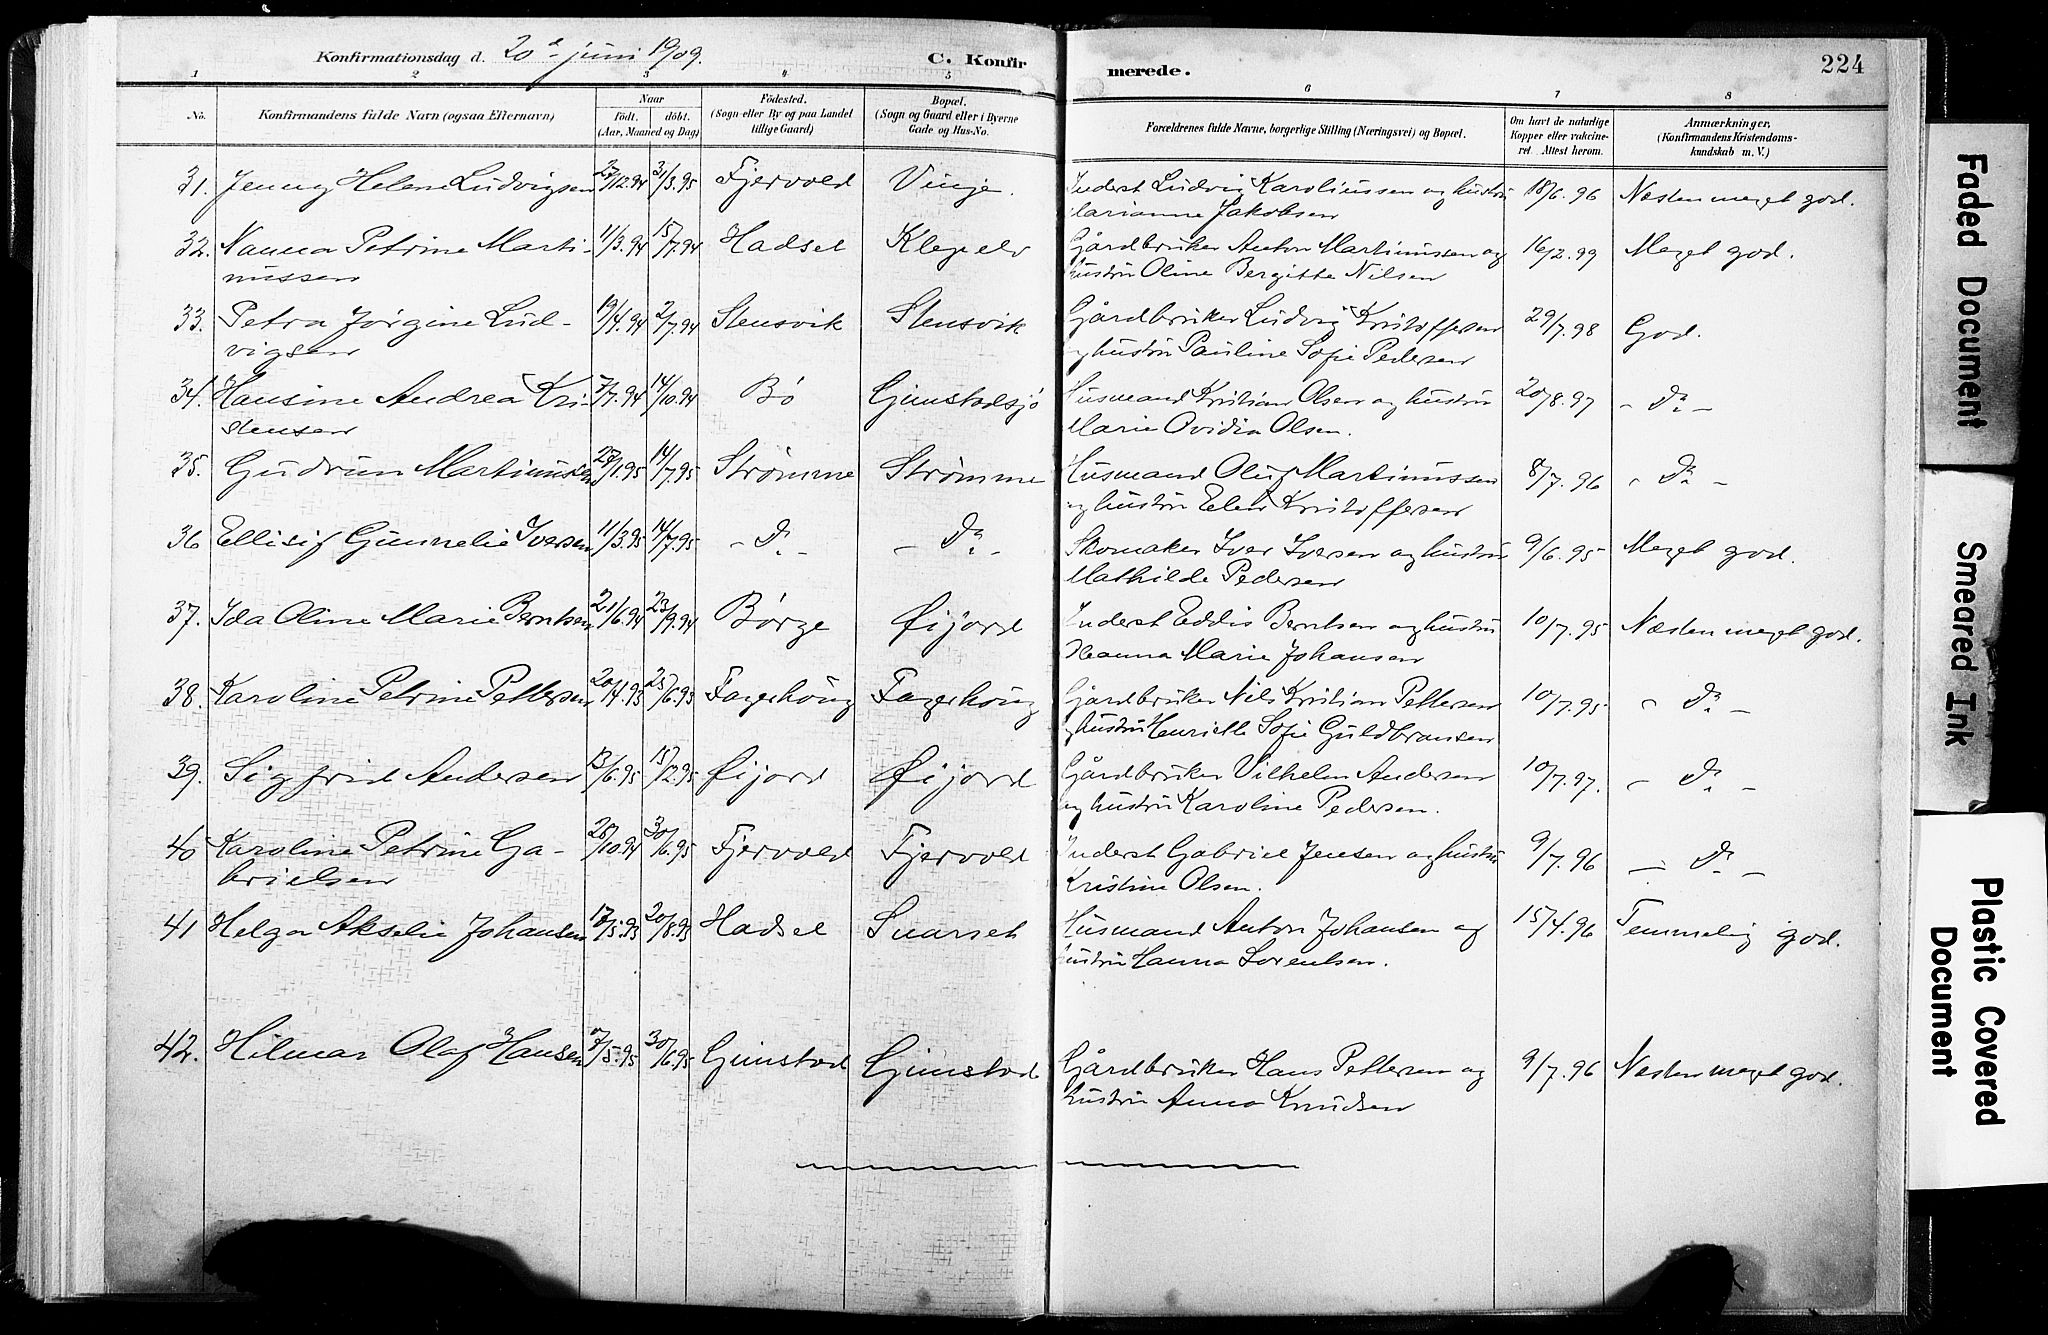 Konfirmationsdag d. 20de juni 1909. C. Konfir merede. 224
1 2 3 4 5 6 7 8
No. Konfirmandens fulde Navn (ogsaa Efternavn) Naar født. døbt. (Aar, Maaned og Dag) Fødested. (Sogn eller By og paa Landet tillige Gaard) Bopæl. (Sogn og Gaard eller i Byerne Gade og Hus-No. Forældrenes fulde Navne, borgerlige Stilling (Næringsvei) og Bopæl. Om havt de naturlige Kopper eller vakcineret. Attest herom. Anmærkninger, (Konfirmandens Kristendomskundskab m. V.)
31. Jenny Helene Ludvigsen 27/12.94 31/3.95 Fjervold Vinje. Inderst Ludvig Karoliussen og hustru 18/6.96 Næsten meget god.
Marianne Jakobsen
32. Nanna Petrine Marti- 11/3.94 15/7.94 Hadsel Klageelv Gårdbruker Anton Martinussen og 16/2.99 Meget god.
nussen hustru Oline Bergitte Nilsen
33. Petra Jørgine Lud- 19/4.94 2/7.94 Stensvik Stensvik Gårdbruker Ludvig Kristoffersen 29/7.98 God.
vigsen og hustru Pauline Sofie Pedersen
34. Hansine Andrea Kri- 7/7.94 14/10.94 Bø Gimstadsjø Husmand Kristian Olsen og hustru 20/8.97 - Do -
stensen Marie Ovidia Olsen.
35. Gudrun Martinussen 27/1.95 14/7.95 Strømme Strømme Husmand Oluf Martinussen 8/7.96 - Do -
og hustru Elen Kristoffersen
36 Ellisif Gunnelie Iversen 11/3.95 14/7.95 - Do - - Do - Skomaker Iver Iversen og hustru 9/6.95 Meget god.
Mathilde Pedersen
37. Ida Oline Marie Berntsen 21/6.94 23/9.94 Børge Øijord Inderst Eddis Berntsen og hustru 10/7.95 Næsten meget god.
Hanna Marie Johansen
38. Karoline Petrine Pettersen 20/4.95 25/6.95 Fagerhøug Fagerhøug Gårdbruker Nils Kristian Pettersen 10/7.95 - Do -
og hustru Henriette Sofie Guldbransen
39. Sigfrid Andersen 13/6.95 15/12.95 Øijord Øijord Gårdbruker Vilhelm Andersen 10/7.97. - Do -
og hustru Karoline Pedersen.
40 Karoline Petrine Ga- 25/10.94 30/6.95 Fjervold Fjervold Inderst Gabriel Jensen og hustru 9/7.96 - Do -
brielsen Kristine Olsen.
41 Helga Akselie Johansen 17/5.95 20/8.95 Hadsel Svarset Husmand Anton Johansen og 15/4.96 Temmelig god.
hustru Hanna Sørensen.
42. Hilmar Olaf Hansen 7/5.95 30/6.95 Gimstad Gimstad Gårdbruker Hans Pettersen og 9/7.96 Næsten meget god.
hustru Anna Knudsen
Faded Document
Smeared Ink
Plastic Covered
Document